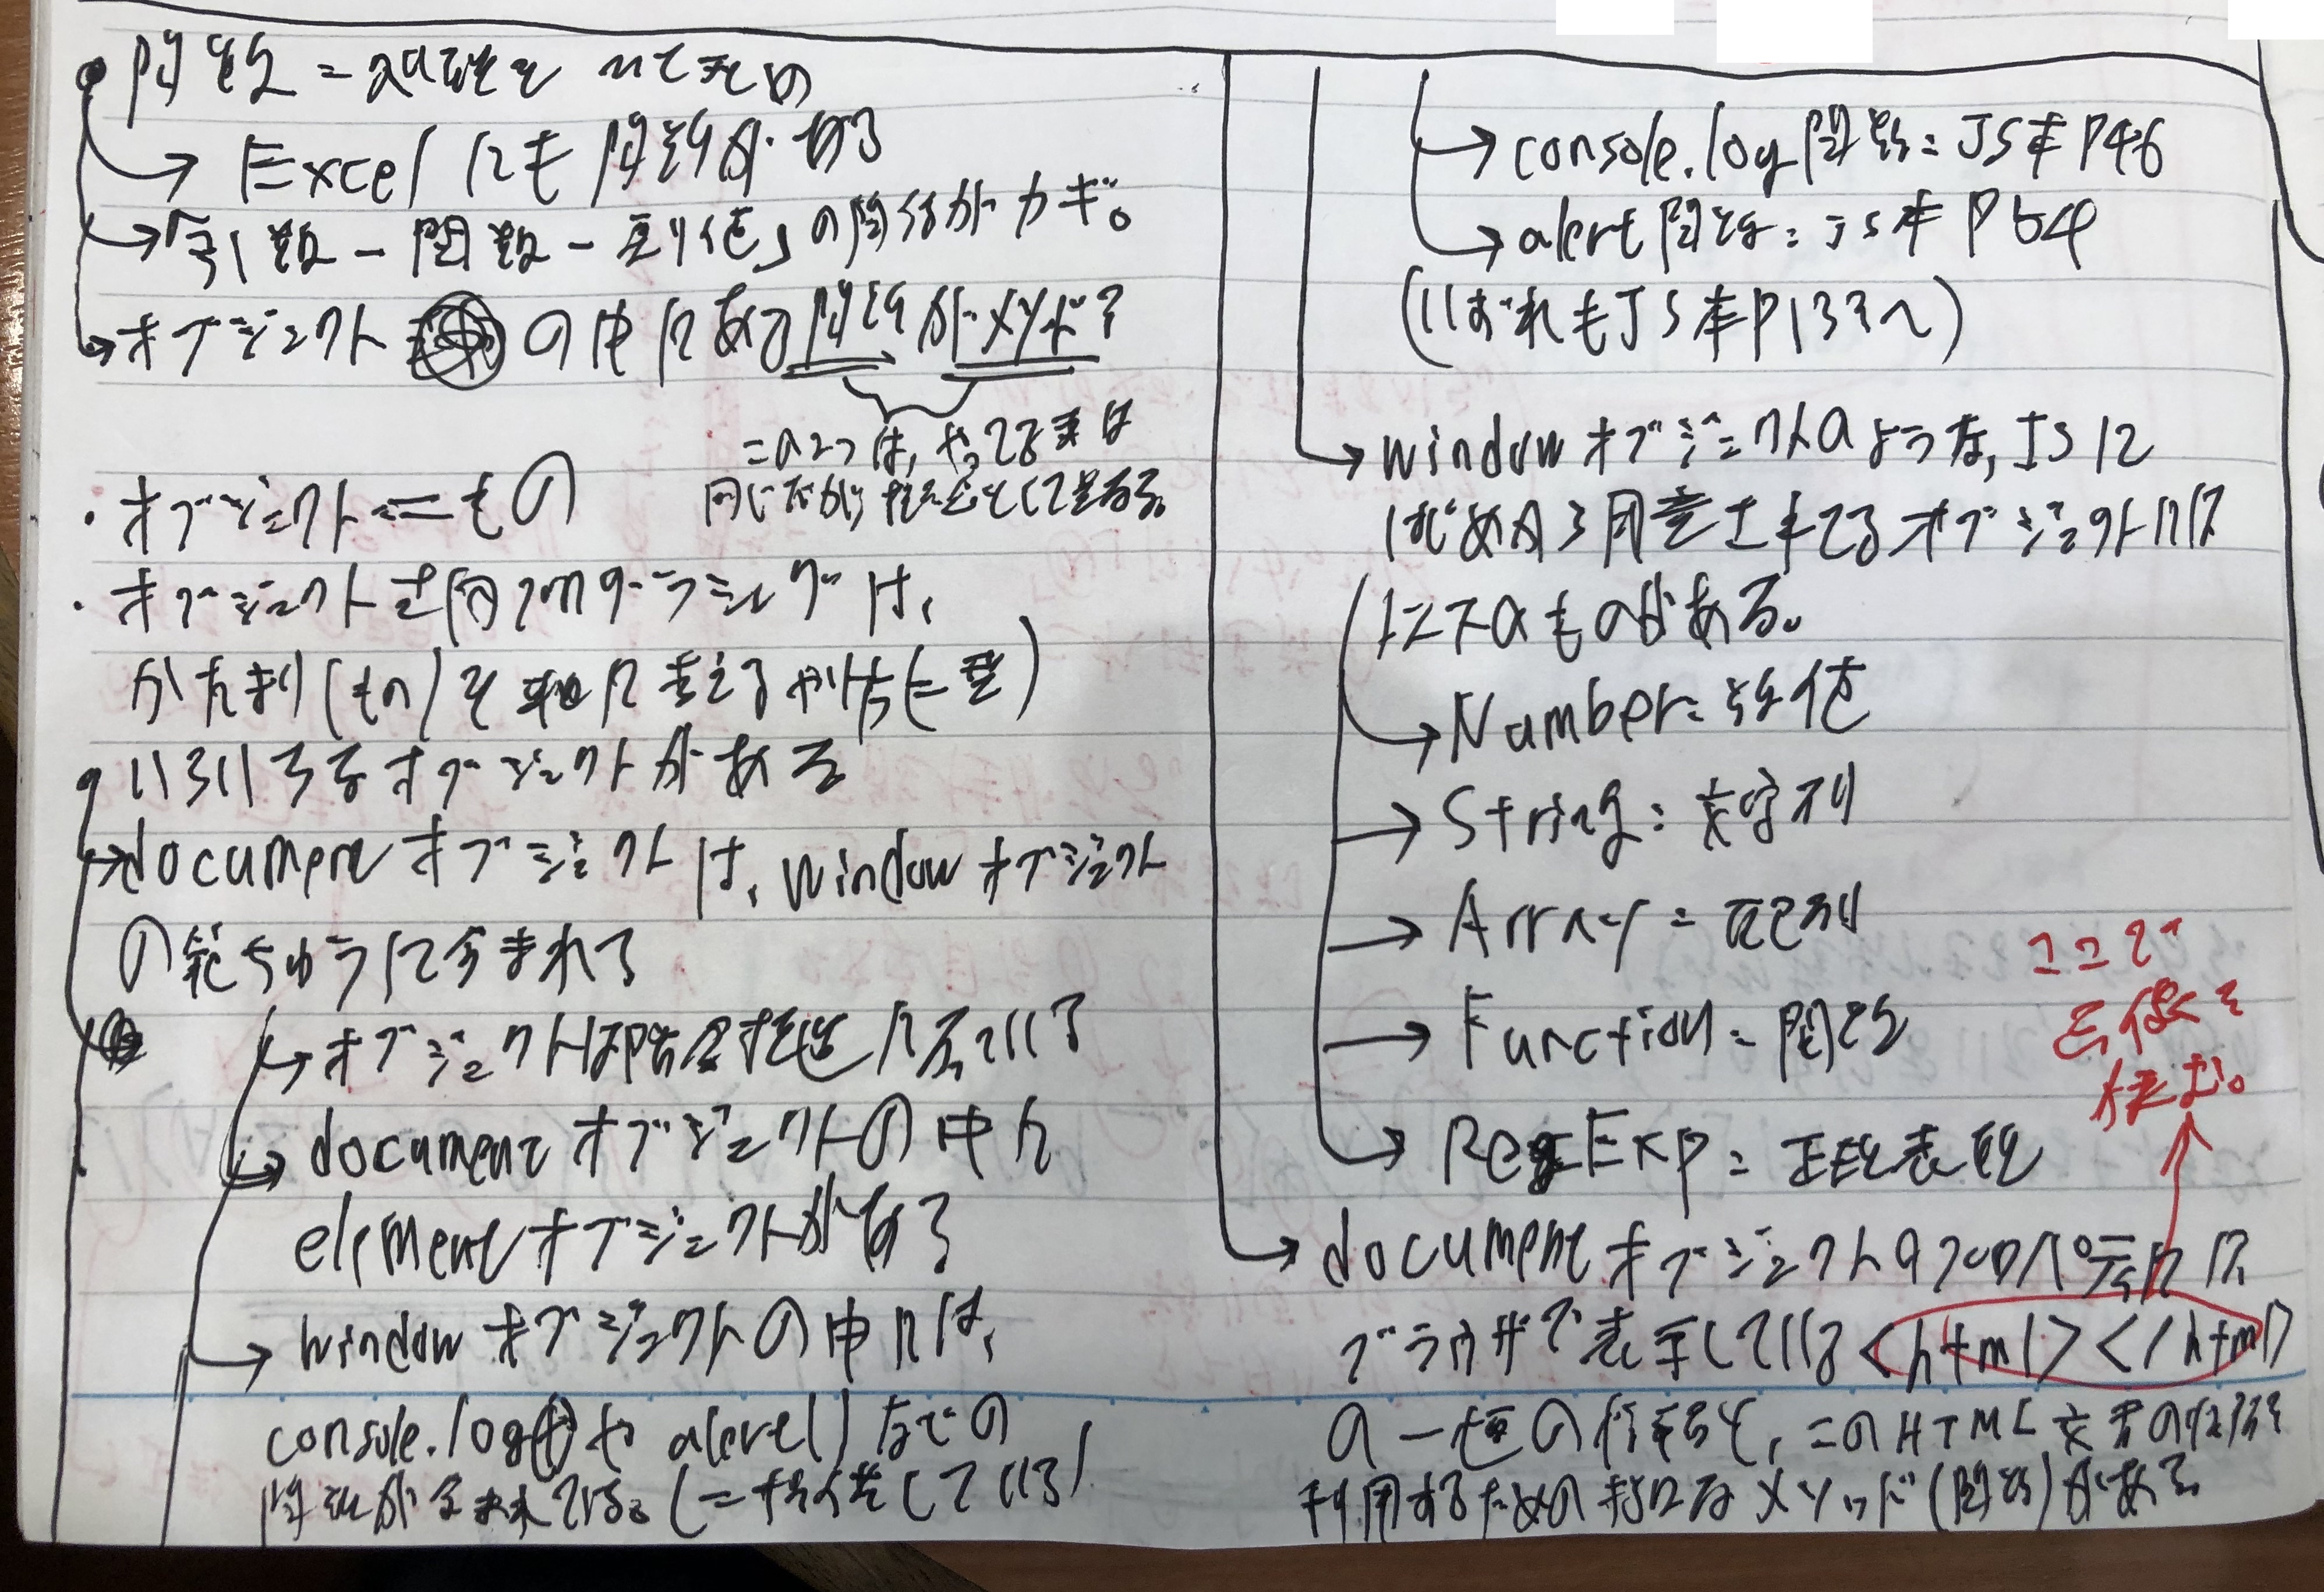 関数=初球を
→Excelにも関数がある
→「引数ー関数ー戻り値」の関係がカギ。
→オブジェクトの中にある関数がメソッド?
この2つは、やってる事は
同じだが概念として異なる。
・オブジェクト==もの
・オブジェクト志向プログラミングは、
かたまり(もの)を軸に考えるやり方(=型)
いろいろなオブジェクトがある
→documentオブジェクトは、windowオブジェクト
の範ちゅうに含まれる
→オブジェクトは階層構造になっている
→documentオブジェクトの中に
elementオブジェクトがある
→windowオブジェクトの中には、
console.log()やalert()などの
関数が含まれている。(=
している)
→console.log関数:JS本P46
→alert関数:JS本P54
(いずれもJS本P133へ)
→windowオブジェクトのような、JSに
はじめから用意されてるオブジェクトには
ものがある。
→Number:数値
→String:文字列
→Array=配列
→Function=関数
→RegExp=正規表現
→documentオブジェクトのプロパティには
ブラウザで表示している<html></html>
の一連の情報や、このHTML文書の
利用するためのメソッド(関数)がある
ココで
画像を
挟む。